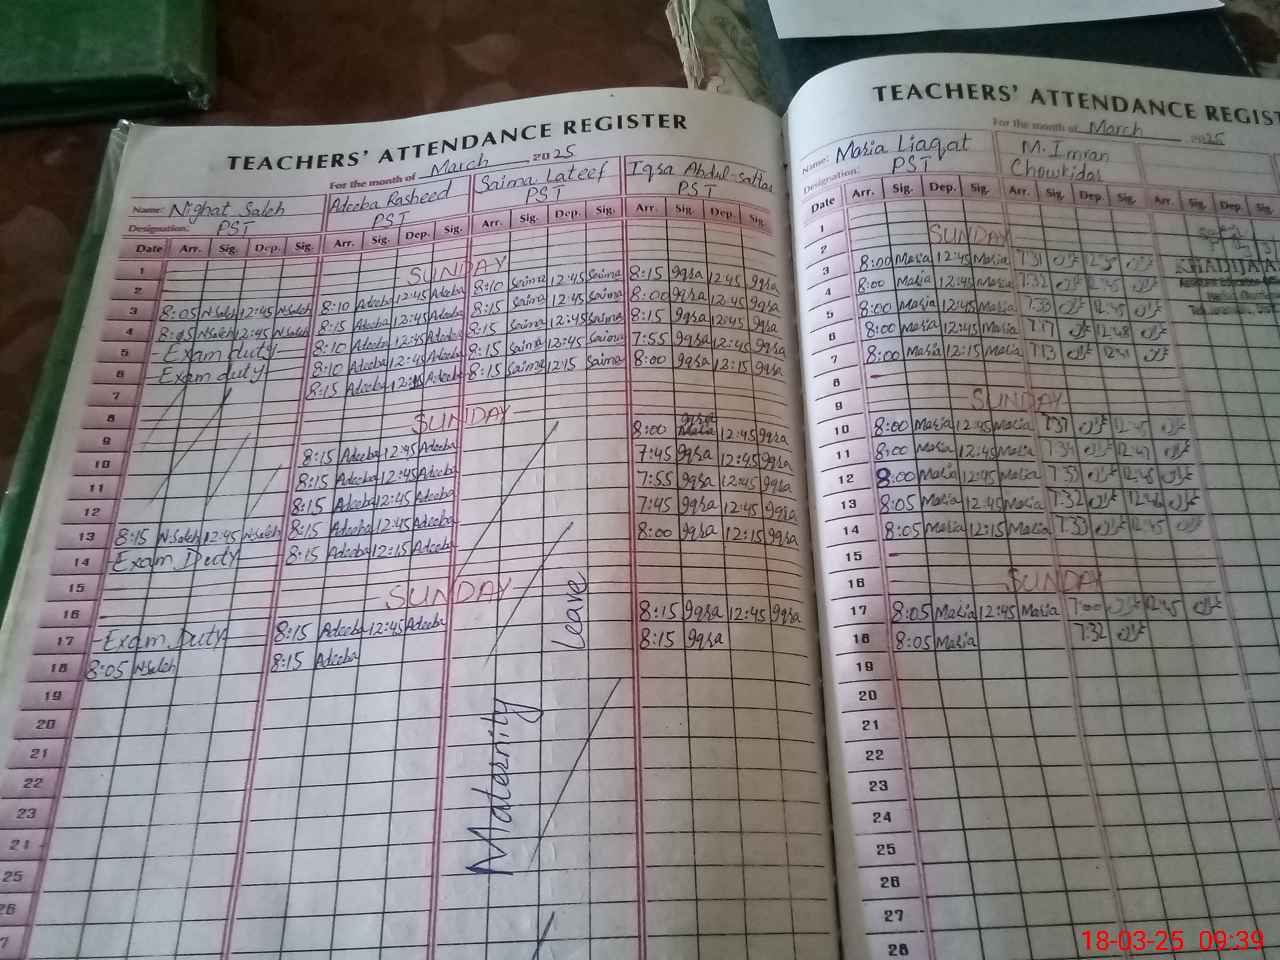 TEACHERS' ATTENDANCE REGISTER
For the month of March 2025
Name: Nighat Saleh Adeeba Rasheed Saima Lateef Iqra Abdul-Sattar
Designation: PST PST PST PST
Date Arr. Sig. Dep. Sig. Arr. Sig. Dep. Sig. Arr. Sig. Dep. Sig. Arr. Sig. Dep. Sig.
1
2 SUNDAY
3 8:05 N.Saleh 12:45 N.Saleh 8:10 Adeeba 12:45 Adeeba 8:10 Saima 12:45 Saima 8:15 Iqra 12:45 Iqra
4 8:05 N.Saleh 12:45 N.Saleh 8:15 Adeeba 12:45 Adeeba 8:15 Saima 12:45 Saima 8:00 Iqra 12:45 Iqra
5 Exam duty 8:10 Adeeba 12:45 Adeeba 8:15 Saima 12:45 Saima 8:15 Iqra 12:45 Iqra
6 Exam duty 8:10 Adeeba 12:45 Adeeba 8:15 Saima 12:45 Saima 7:55 Iqra 12:45 Iqra
7 8:15 Adeeba 12:15 Adeeba 8:15 Saima 12:15 Saima 8:00 Iqra 12:15 Iqra
8
9 SUNDAY
10 8:15 Adeeba 12:45 Adeeba 8:00 Iqra 12:45 Iqra
11 8:15 Adeeba 12:45 Adeeba 7:45 Iqra 12:45 Iqra
12 8:15 Adeeba 12:45 Adeeba 7:55 Iqra 12:45 Iqra
13 8:15 N.Saleh 12:45 N.Saleh 8:15 Adeeba 12:45 Adeeba 7:45 Iqra 12:45 Iqra
14 Exam Duty 8:15 Adeeba 12:15 Adeeba 8:00 Iqra 12:15 Iqra
15
16 SUNDAY
17 Exam Duty 8:15 Adeeba 12:45 Adeeba 8:15 Iqra 12:45 Iqra
18 8:05 N.Saleh 8:15 Adeeba 8:15 Iqra
19
20
21
22
23
24
25
26
7
Maternity Leave
TEACHERS' ATTENDANCE REGIST
For the month of March 2025
Name: Maria Liaqat M. Imran
Designation: PST Chowkidar
Date Arr. Sig. Dep. Sig. Arr. Sig. Dep. Sig. Arr. Sig. Dep. Sig.
1
2 SUNDAY
3 8:00 Maria 12:45 Maria 7:31
4 8:00 Maria 12:45 Maria 7:32 12:45
5 8:00 Maria 12:45 Maria 7:33 12:45
6 8:00 Maria 12:45 Maria 7:17 12:48
7 8:00 Maria 12:15 Maria 7:13
8
9 SUNDAY
10 8:00 Maria 12:45 Maria 7:37 12:45
11 8:00 Maria 12:45 Maria 12:47
12 8:00 Maria 12:45 Maria 7:33
13 8:05 Maria 12:45 Maria 7:32
14 8:05 Maria 12:15 Maria 7:33
15
16 SUNDAY
17 8:05 Maria 12:45 Maria 7:00 12:45
18 8:05 Maria 7:32
19
20
21
22
23
24
25
26
27
28
KHADIJA
18-03-25 09:39